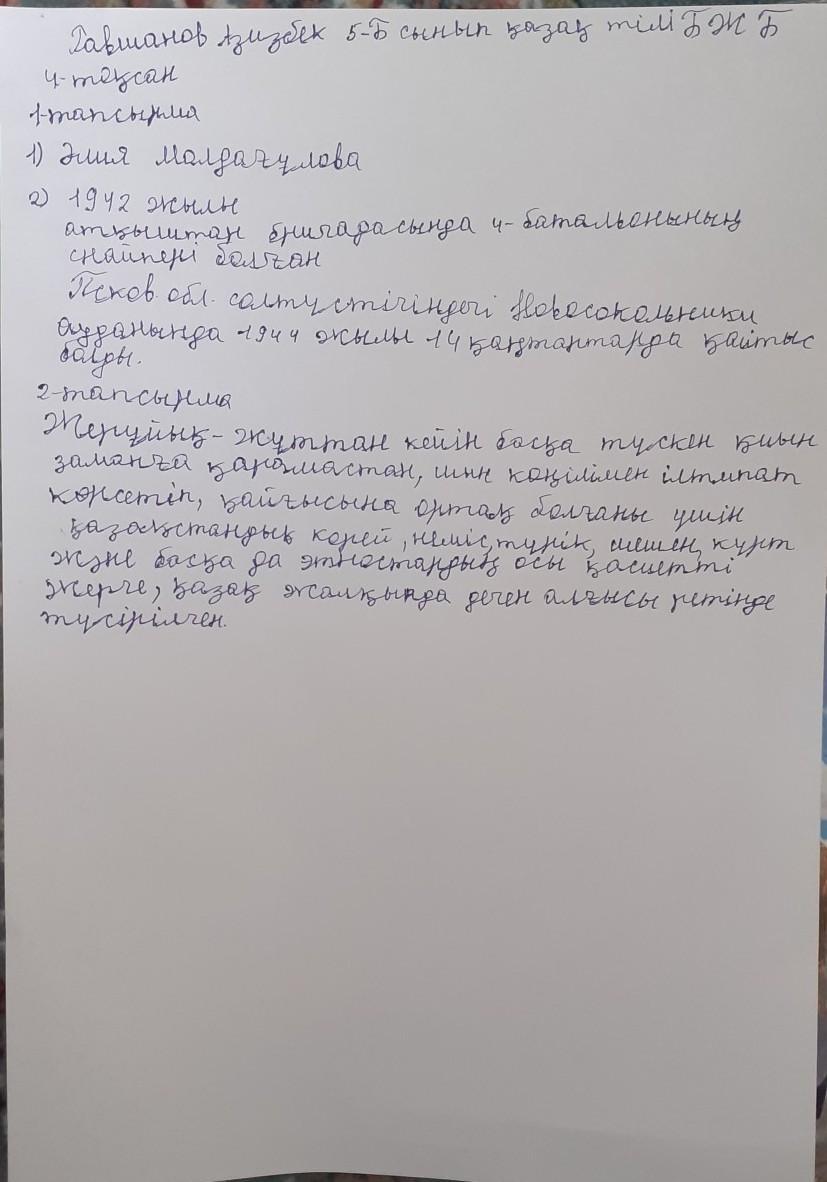 Равшанов Азизбек 5-Б сынып қазақ тілі БЖБ
4-тоқсан
1-тапсырма
1) Әлия Молдағұлова
2) 1942 жылы
атқыштар бригадасында 4-батальонының
снайпері болған
Псков обл. солтүстігіндегі Новосокольники
ауданында 1944 жылы 14 қаңтантарда қайтыс
болды.
2-тапсырма
Жерұйық-жұттан кейін басқа түскен қиын
заманға қарамастан, шын көңілімен ілтипат
көрсетіп, қайғысына ортақ болғаны үшін
қазақстандық корей, неміс, түрік, шешен, күрт
және басқа да этностардың осы қасиетті
жерге, қазақ жалқында деген алғысы ретінде
түсірілген.